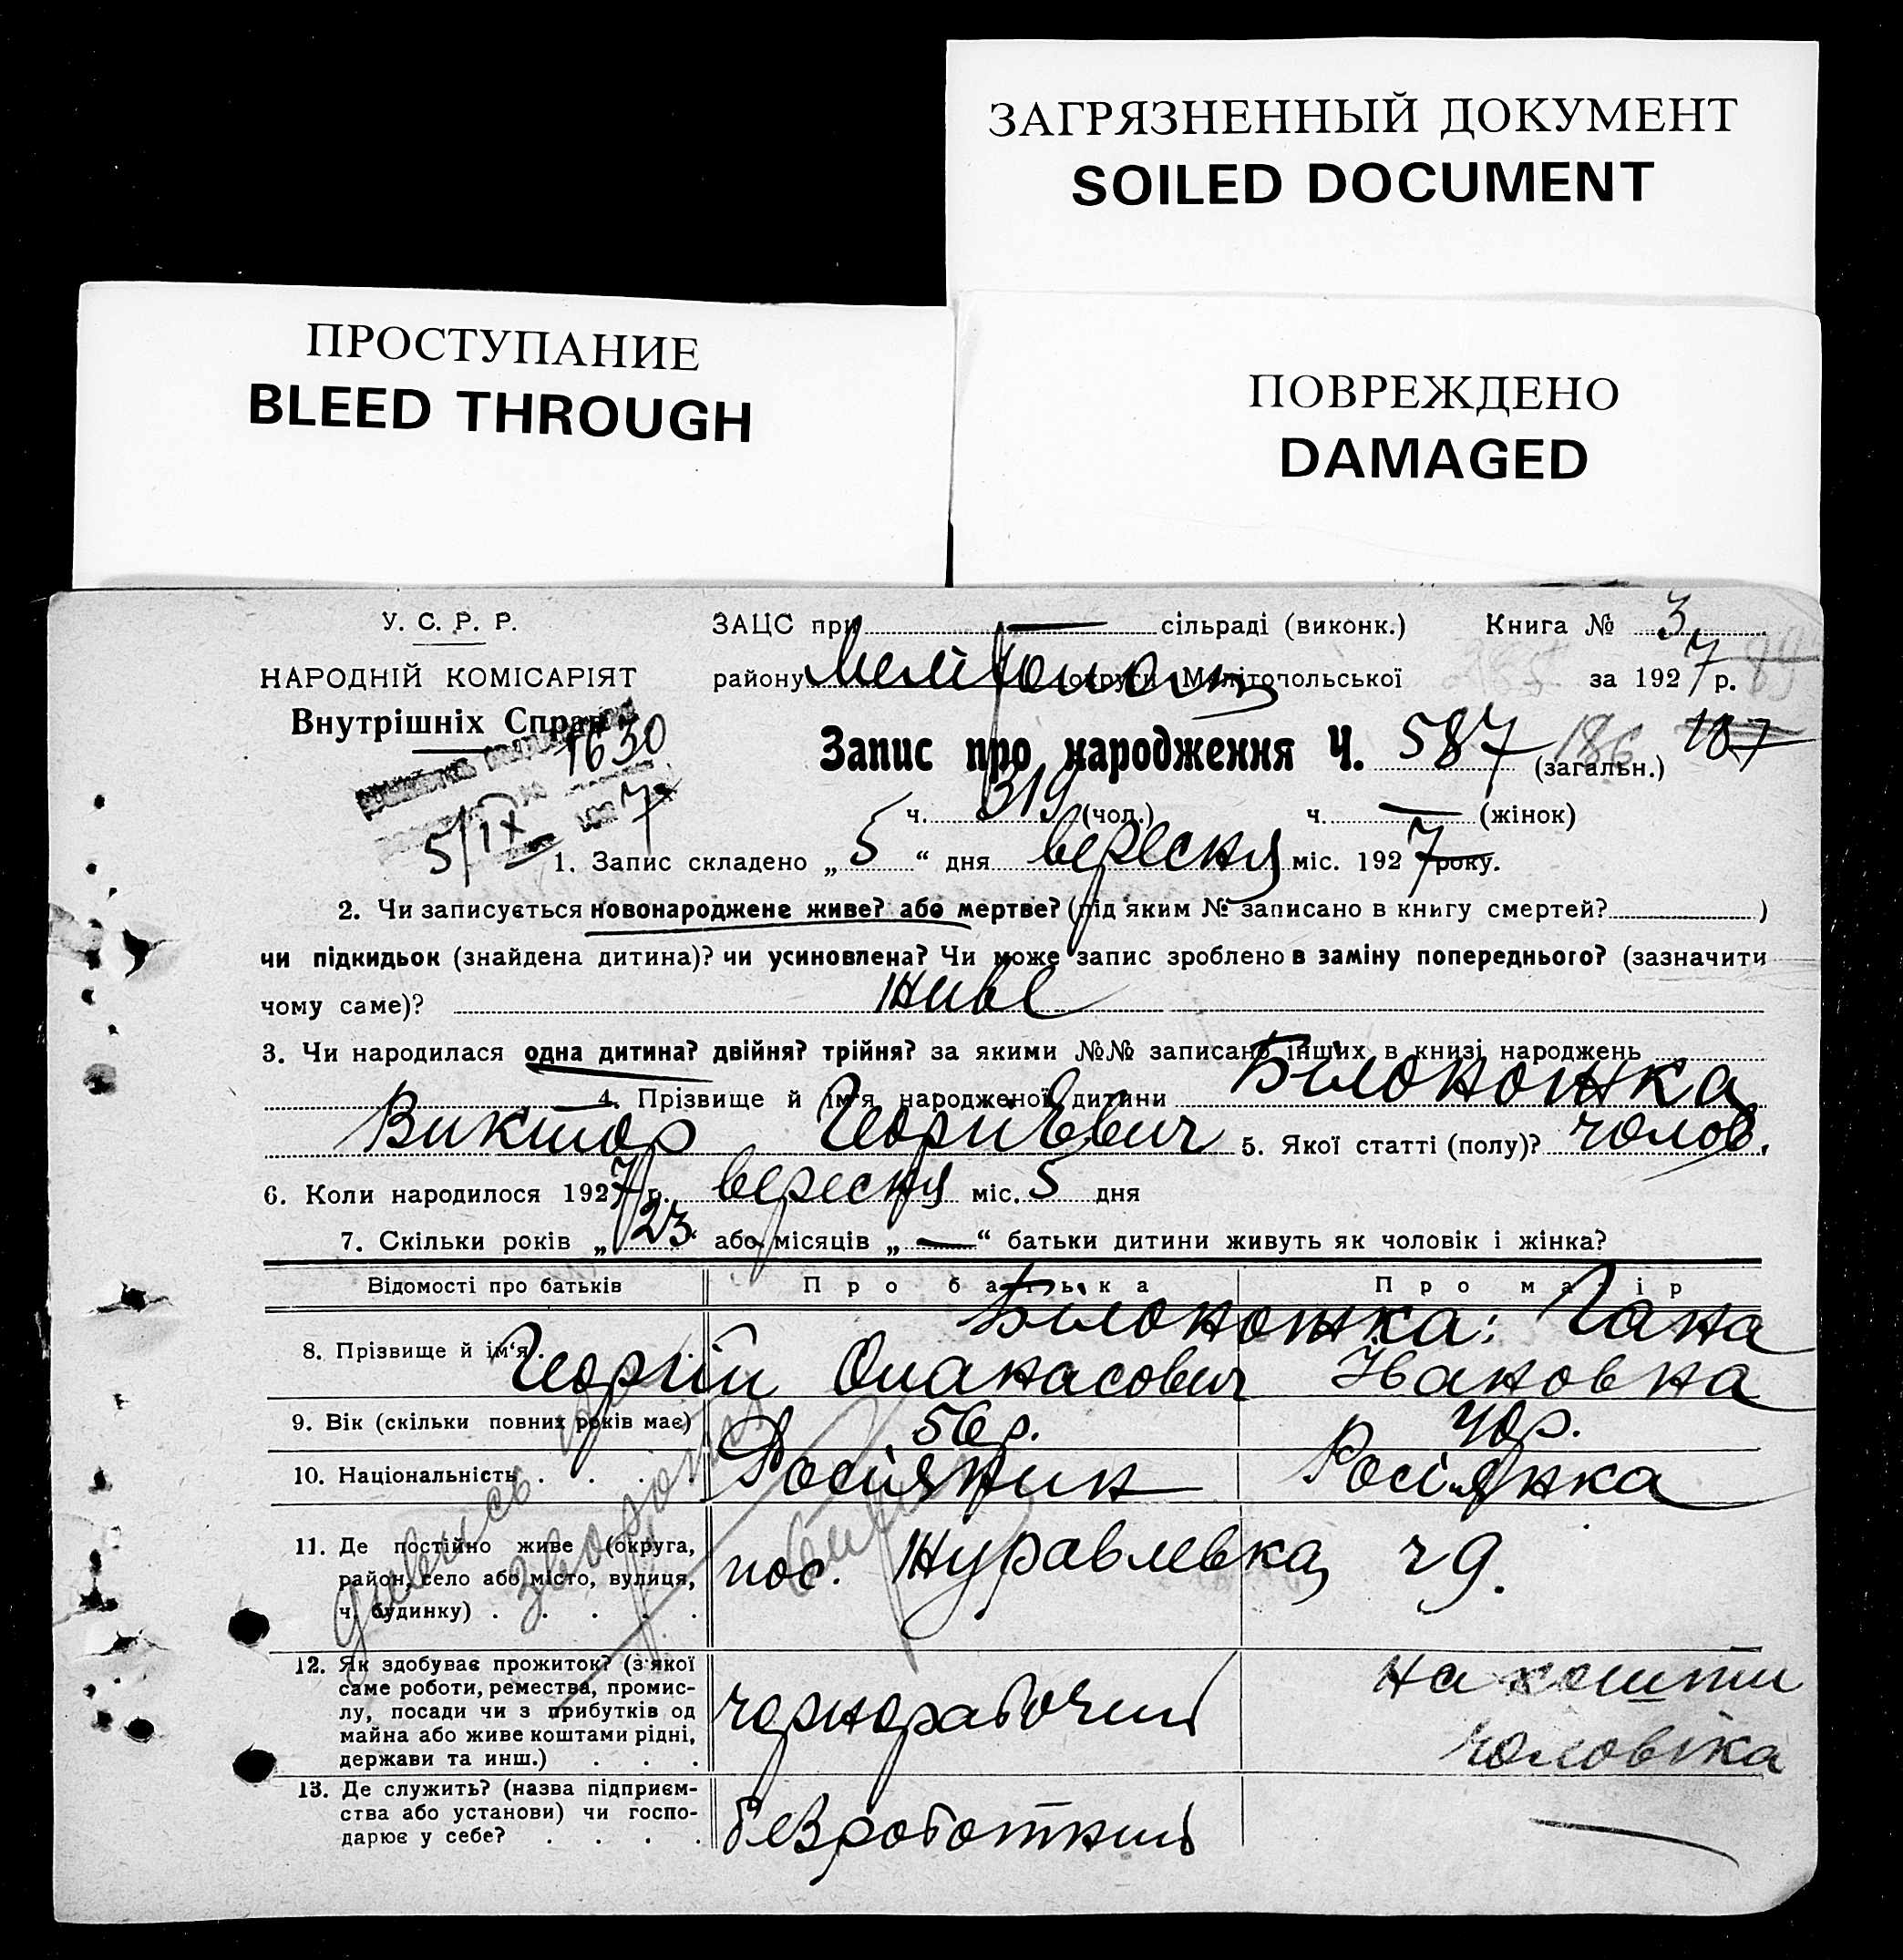 ЗАГРЯЗНЕННЫЙ ДОКУМЕНТ
SOILED DOCUMENT
ПРОСТУПАНИЕ
BLEED THROUGH
ПОВРЕЖДЕНО
DAMAGED
У. С. Р. Р.
НАРОДНІЙ КОМІСАРІЯТ
Внутрішніх Справ
1630
5/IX 7
ЗАЦС при — сільраді (виконк.) Книга № 3
району округи Мелітопольської за 1927 р. 89
Запис про народження Ч. 587 (загальн.) 186 187
ч. 319 (чол.) ч. — (жінок)
1. Запис складено „ 5 “ дня вересня міс. 1927 року.
2. Чи записується новонароджене живе? або мертве? (під яким № записано в книгу смертей? )
чи підкидьок (знайдена дитина)? чи усиновлена? Чи може запис зроблено в заміну попереднього? (зазначити
чому саме)? живе
3. Чи народилася одна дитина? двійня? трійня? за якими №№ записано інших в книзі народжень
— 4. Прізвище й ім'я народженої дитини Білоножка
Виктор Георгієвич 5. Якої статті (полу)? чолов.
6. Коли народилося 1927 р. вересня міс. 5 дня
7. Скільки років „ 23 або місяців „ — “ батьки дитини живуть як чоловік і жінка?
Відомості про батьків Про батька Про матір
8. Прізвище й ім'я . Білоножка: Гана
Георгій Опанасович Івановна
9. Вік (скільки повних років має) 56 р. 40 р.
10. Національність . . . . Росіянин Росіянка
11. Де постійно живе (округа,
район, село або місто, вулиця,
ч. будинку) . . . . .
пос. Журавлевка, ч 9.
дивись на звороті
12. Як здобуває прожиток? (з якої
саме роботи, ремества, промис-
лу, посади чи з прибутків од
майна або живе коштами рідні,
держави та инш.) . . .
чорнорабочий на кошти
чоловіка
13. Де служить? (назва підприєм-
ства або установи) чи госпо-
дарює у себе? . . . .
безработний —